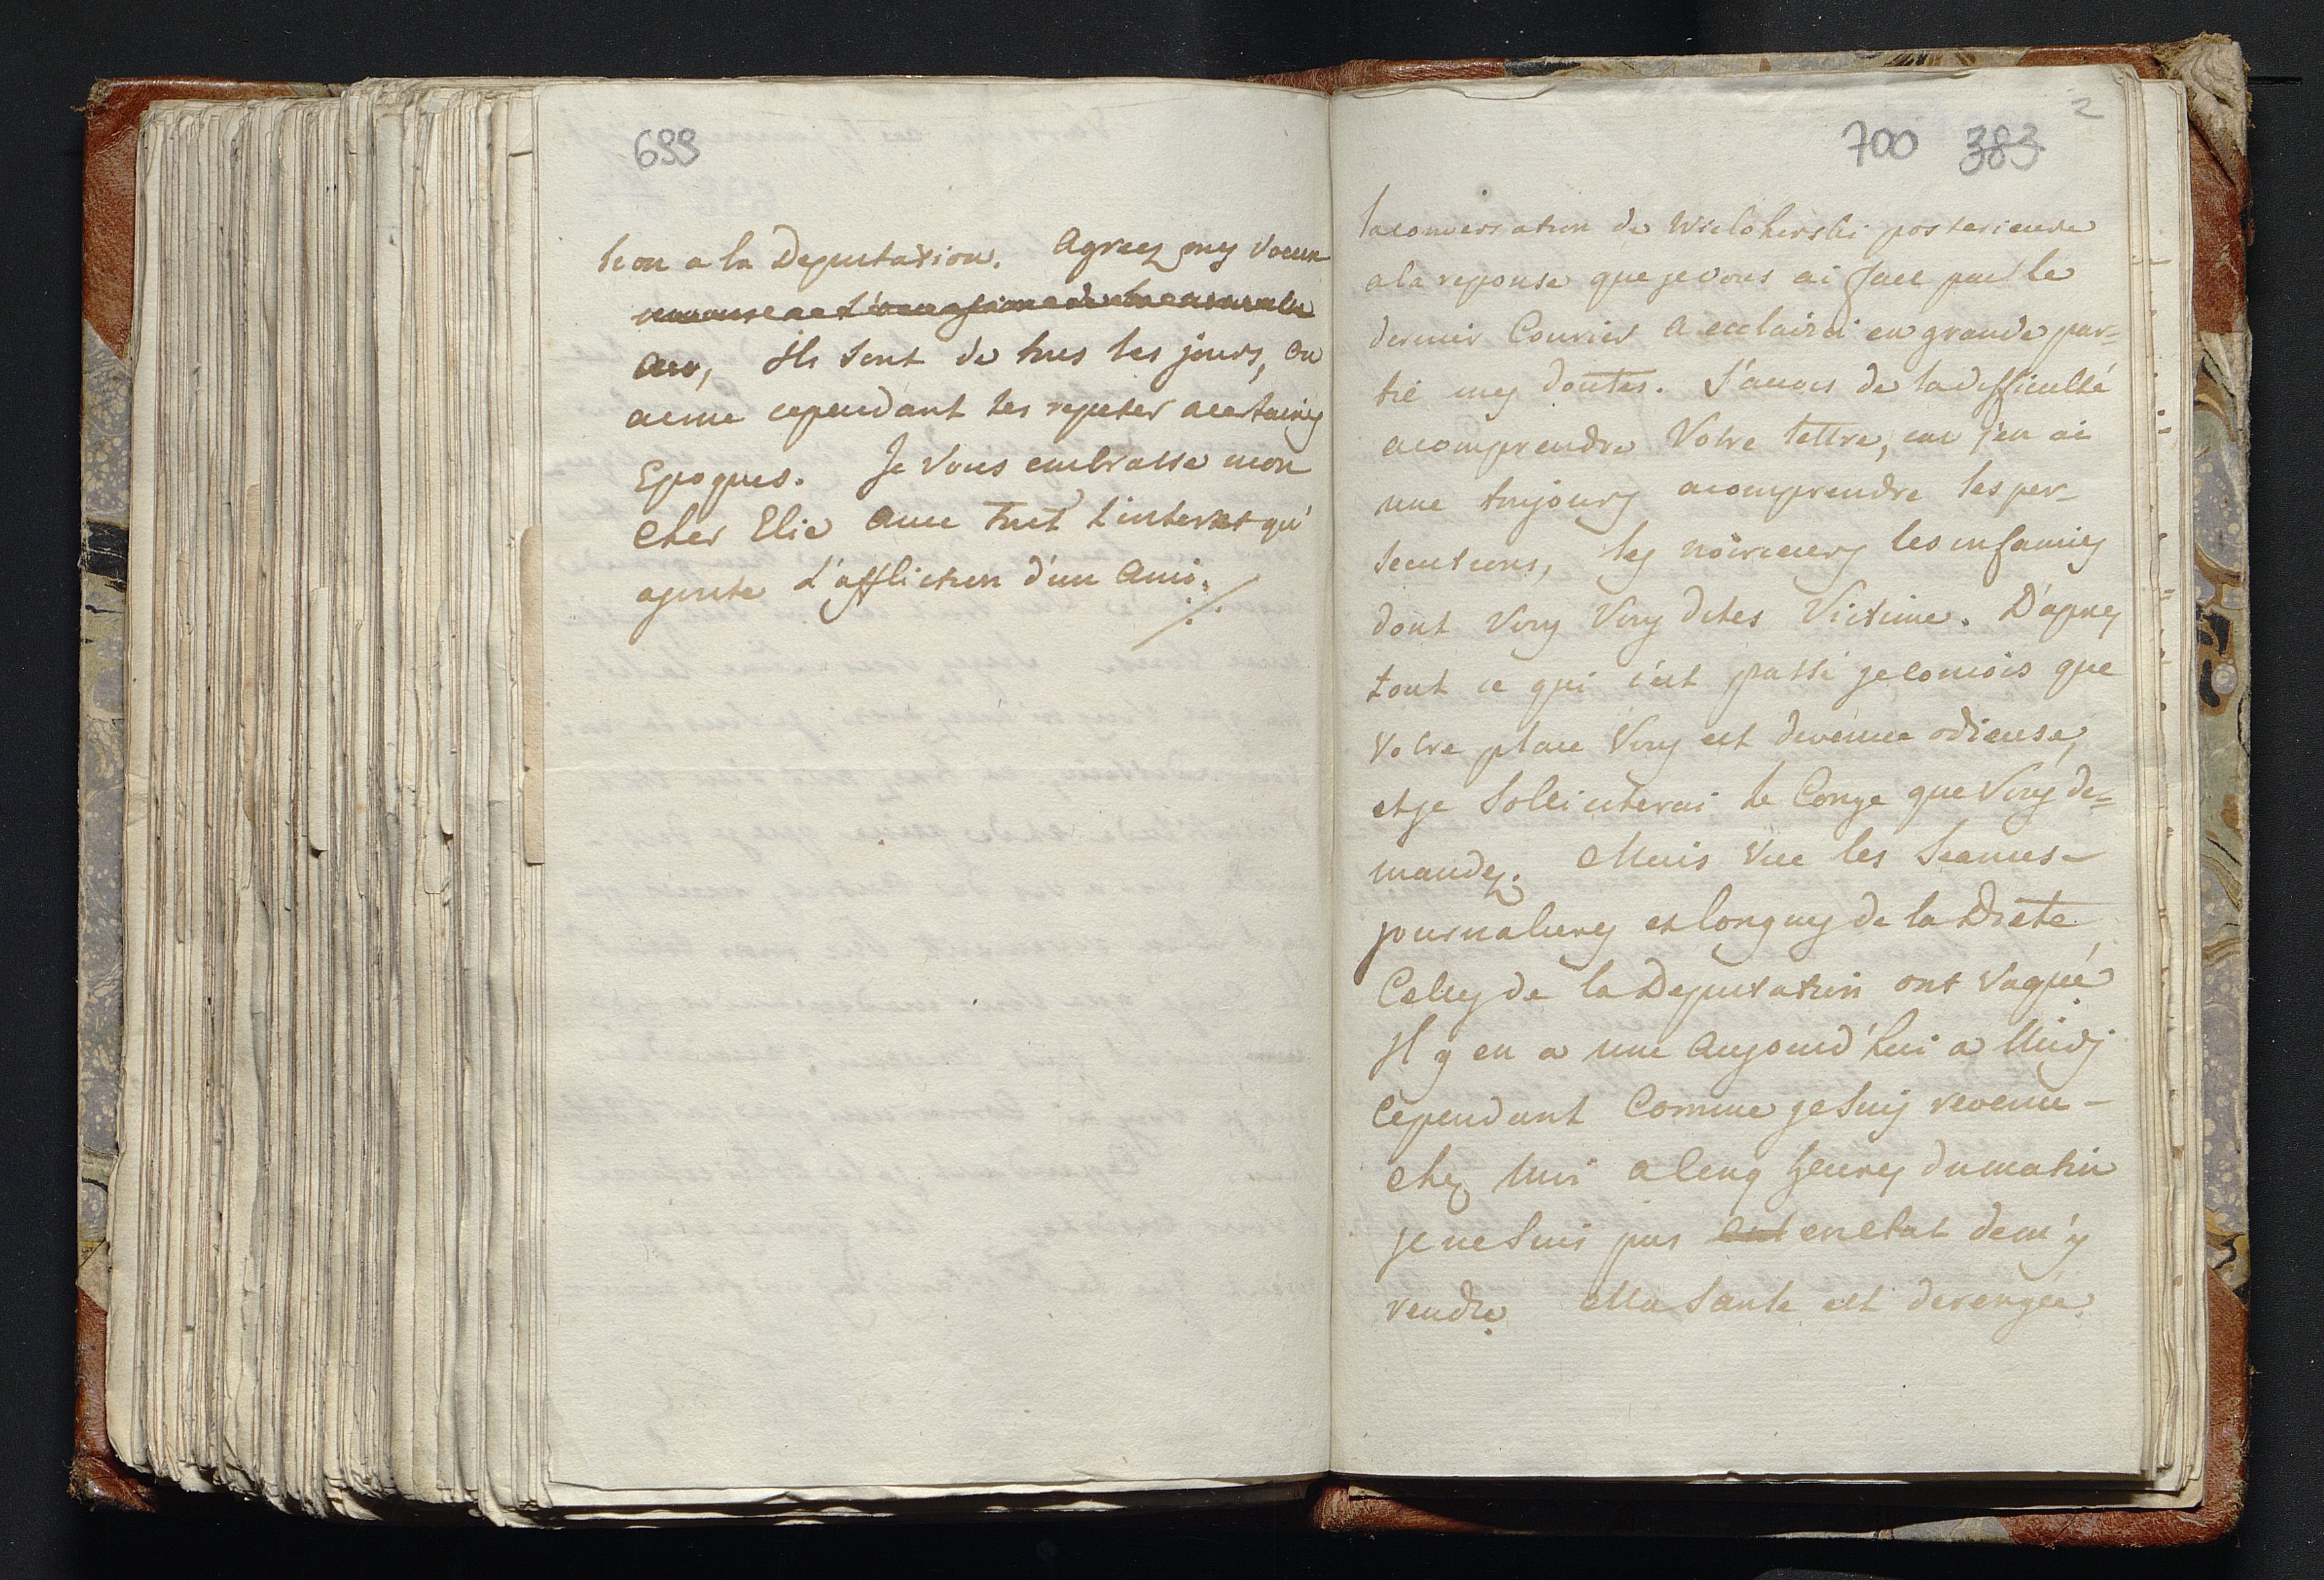 699
tion a la Deputation. Agreez mes voeux
an, Ils sont de tous les jours, on
aime cependant les repeter a certaines
Epoques. Je Vous embrasse mon
Cher Elie avec tout l'interet qu'
ajoute L'affliction d'un Ami ./.
2
700 383
la conversation de Wielohorski posterieure
a la reponse que je vous ai fait par le
dernier Courier a ecclairci en grande par=
tie mes doutes. J'avois de la difficulté
a comprendre Votre lettre, car j'en ai
une toujours a comprendre les per-
secutions, les noirceurs les infamies
dont Vous Vous dites Victime. D'apres
tout ce qui s'est passé je concois que
Votre place Vous est devenue odieuse,
et je Solliciterai le Conge que Vous de=
mandez. Mais Vue les Seances
journalieres et longues de la Diete,
Celles de la Deputation ont vaqué
Il y en a une aujourd'hui a Midj
Cependant Comme je Suis revenu -
chez moi a Cinq heures du matin
je ne Suis pas en etat de m'y
rendre. Ma Sante est derengée.